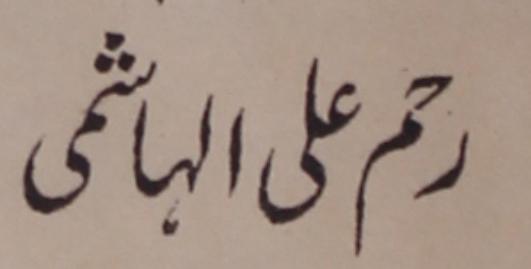 رحم علی الہاشمی